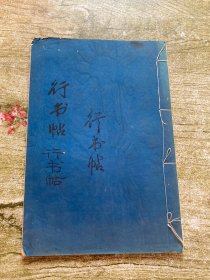 行书帖
行书帖
行书帖